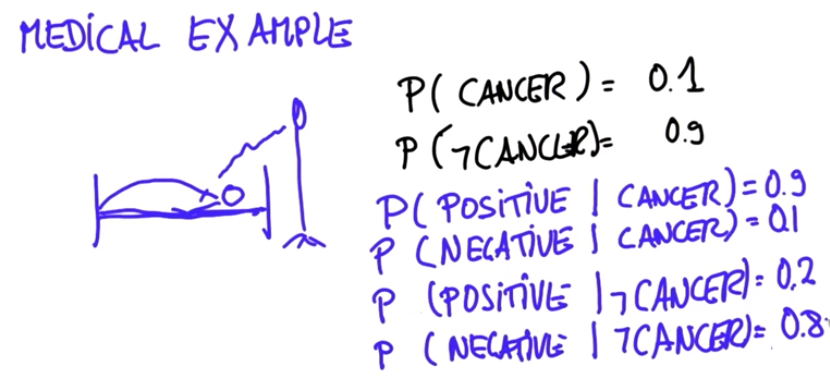 MEDICAL EXAMPLE
P( CANCER ) = 0.1
P (¬CANCER)= 0.9
P( POSITIVE | CANCER) = 0.9
P (NEGATIVE | CANCER) = 0.1
P (POSITIVE | ¬CANCER)= 0.2
P (NEGATIVE | ¬CANCER)= 0.8